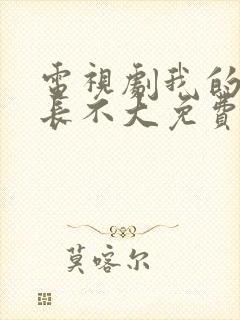 電視劇我的
長不大免費
莫喀尔